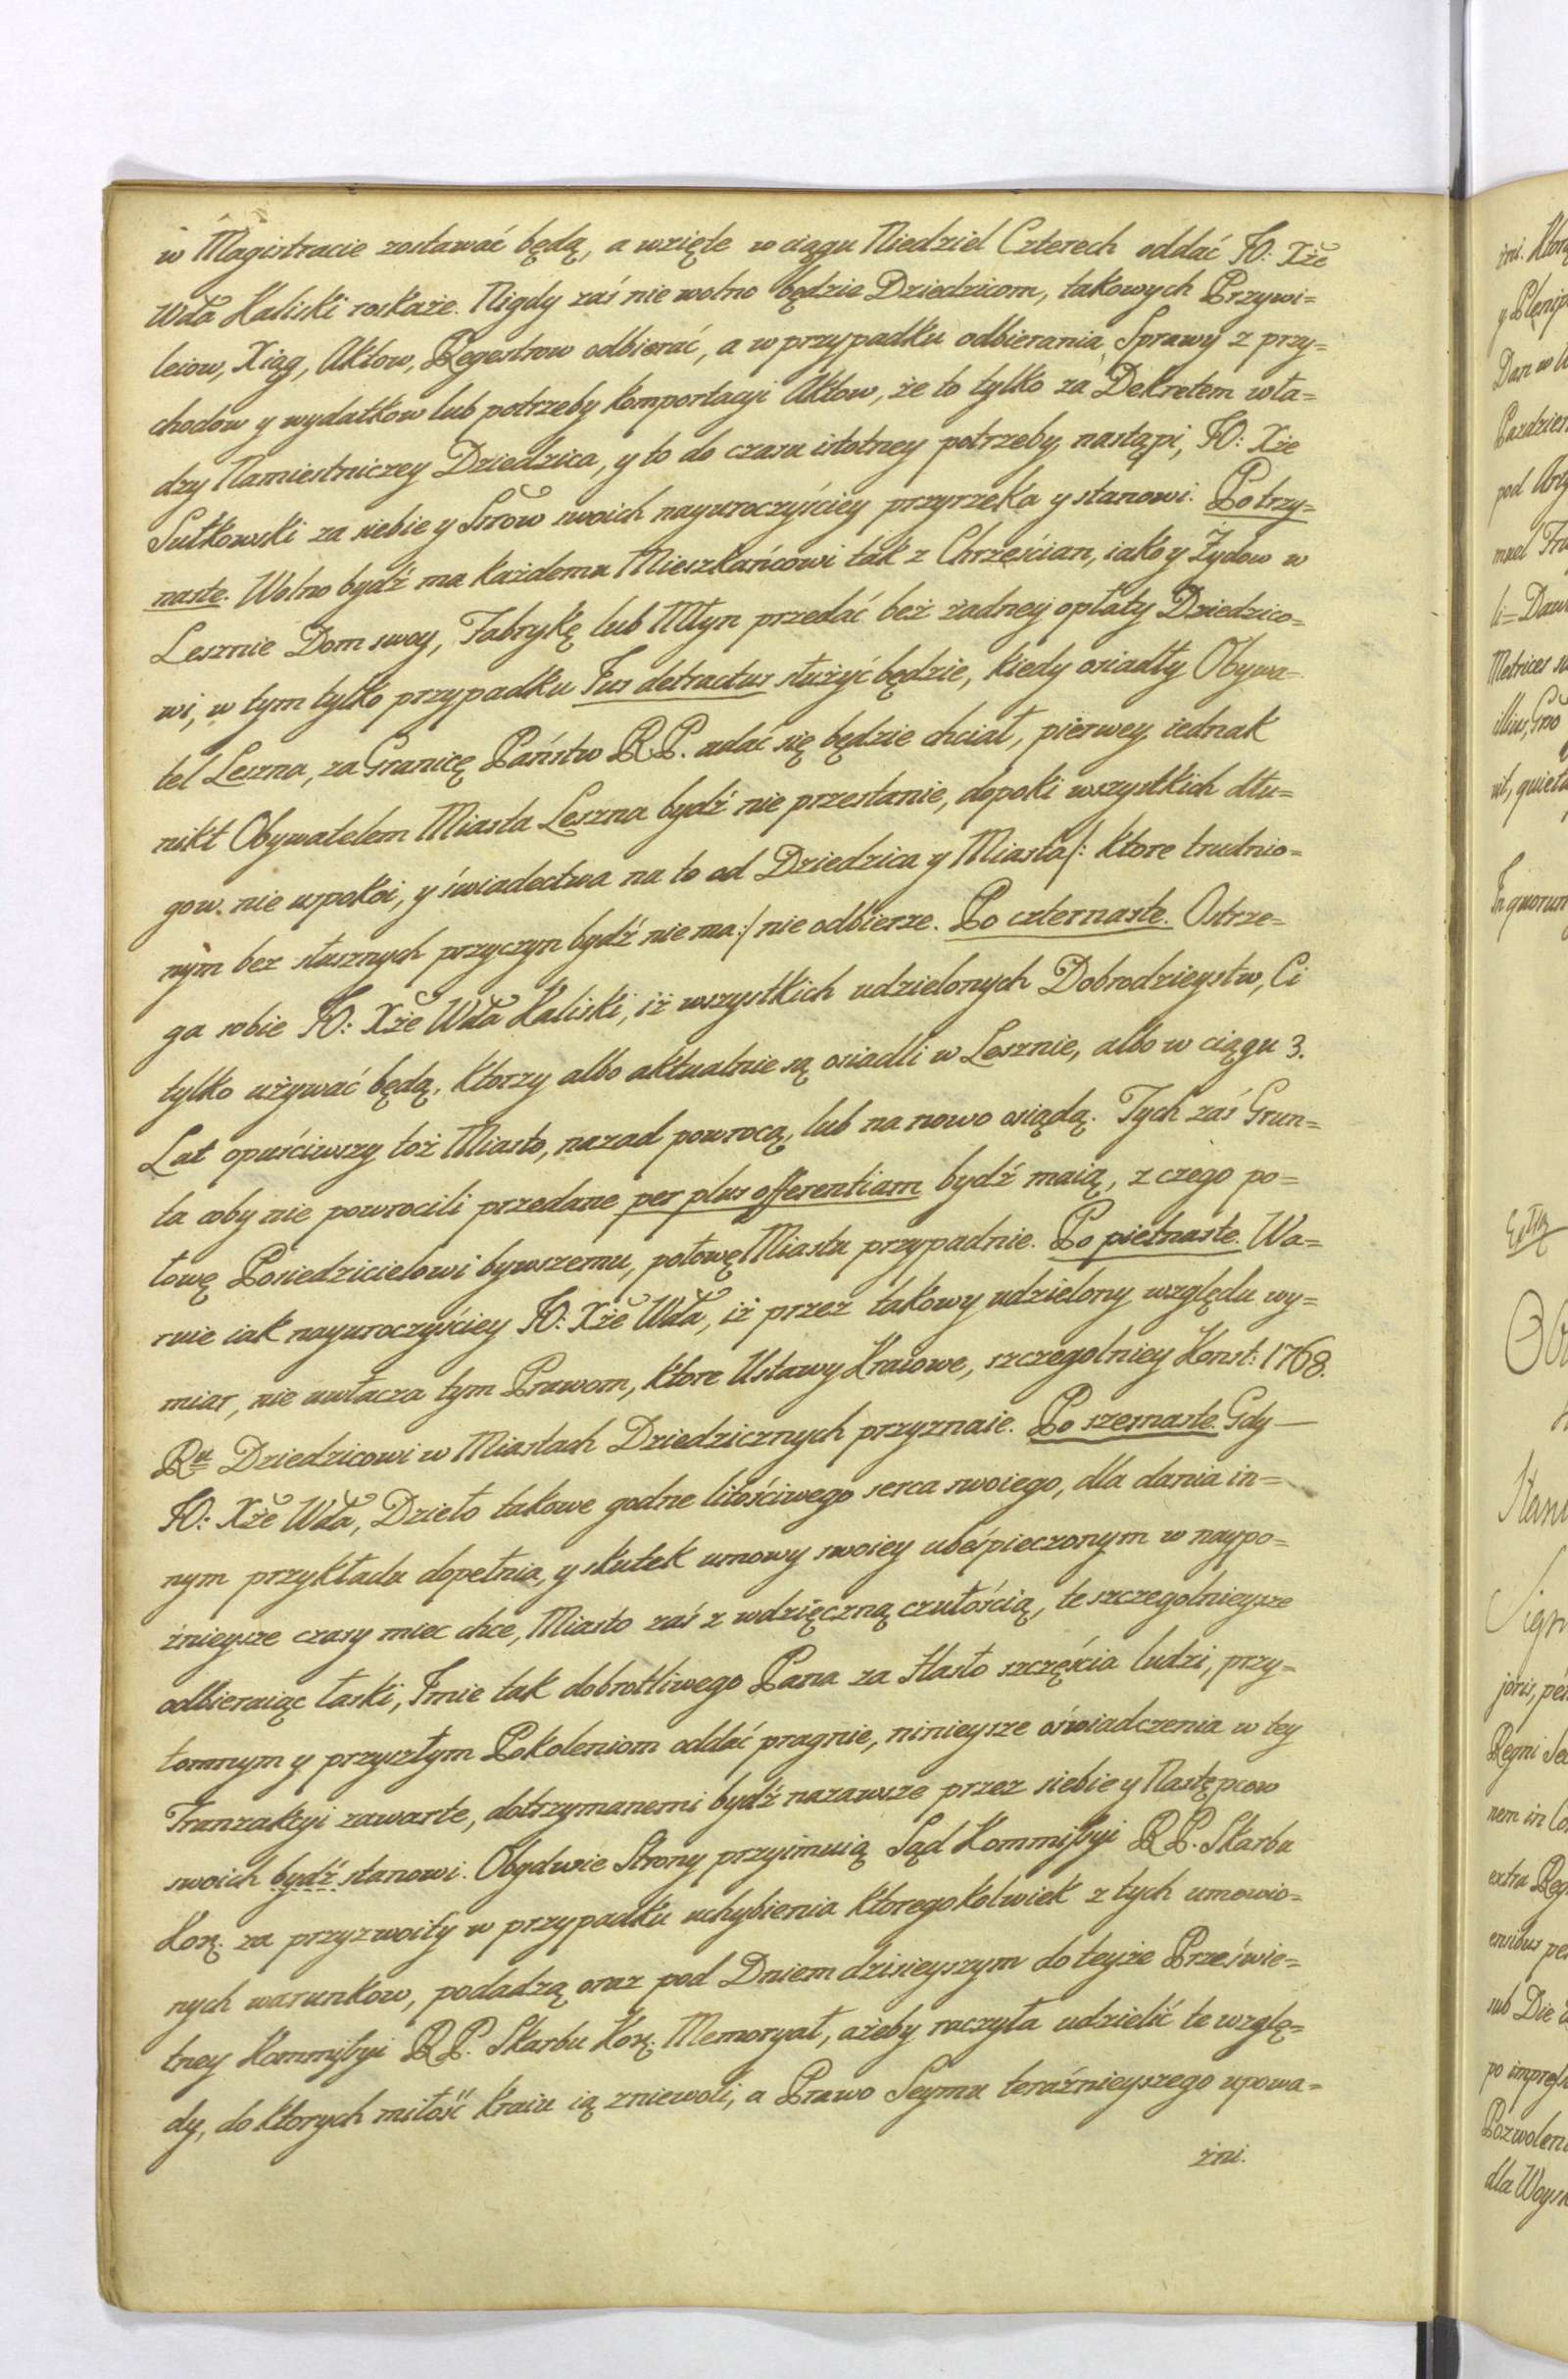 w Magistracie zostawać będą, a wzięte w ciągu Niedziel Czterech oddać JO: Xże
Wda Kaliski roskaże. Nigdy zaś nie wolno będzie Dziedzicom, takowych Przywi=
leiow, Xiąg, Aktow, Regestrow odbierać, a w przypadku odbierania, Sprawy z przy=
chodow y wydatkow lub potrzeby komportacyi Aktow, że to tylko za Dekretem wła=
dzy Namiestniczey Dziedzica, y to do czasu istotney potrzeby, nastąpi, JO: Xże
Sułkowski za siebie y Srow swoich nayuroczyściey przyrzeka y stanowi. Po trzy=
naste. Wolno bydź ma każdemu Mieszkańcowi tak z Chrześcian, iako y Żydow w
Lesznie Dom swoy, Fabrykę lub Młyn przedać beż żadney opłaty Dziedzico=
wi, w tym tylko przypadku Jus detractus służyć będzie, kiedy osiadły Obywa=
tel Leszna, za Granicę Państw R.P. udać się będzie chciał, pierwey iednak
nikt Obywatelem Miasta Leszna bydź nie przestanie, dopoki wszystkich dłu=
gow nie uspokoi, y świadectwa na to od Dziedzica y Miasta /: ktore trudnio=
nym bez słusznych przyczyn bydź nie ma :/ nie odbierze. Po czternaste. Ostrze=
ga sobie JO: Xże Wda Kaliski, iż wszystkich udzielonych Dobrodzieystw, Ci
tylko używać będą, ktorzy albo aktualnie są osiadli w Lesznie, albo w ciągu 3.
Lat opuściwszy toż Miasto, nazad powrocą, lub na nowo osiądą. Tych zaś Grun=
ta coby nie powrocili przedane per plus offerentiam bydź maią, z czego po=
łowę Posiedzicielowi bywszemu, połowę Miastu przypadnie. Po pietnaste. Wa=
ruie iak nayuroczyściey JO: Xże Wda, iż przez takowy udzielony względu wy=
miar, nie uwłacza tym Prawom, ktore Ustawy Kraiowe, szczegolniey Konst: 1768.
Ru Dziedzicowi w Miastach Dziedzicznych przyznaie. Po szesnaste. Gdy—
JO: Xże Wda, Dzieło takowe godne litościwego serca swoiego, dla dania in=
nym przykładu dopełnia, y skutek umowy swoiey ubeśpieczonym w naypo=
źnieysze czasy miec chce, Miasto zaś z wdzięczną czułością, te szczegolnieysze
odbieraiąc łaski, Jmie tak dobrotliwego Pana za Hasło szczęścia ludzi, przy=
tomnym y przyszłym Pokoleniom oddać pragnie, ninieysze oświadczenia w tey
Tranzakcyi zawarte, dotrzymanemi bydź nazawsze przez siebie y Następcow
swoich bydź stanowi. Obydwie Strony przyimuią Sąd Kommissyi R.P. Skarbu
Korą. za przyzwoity w przypadku uchybienia ktoregokolwiek z tych umowio=
nych warunkow, podadzą oraz pod Dniem dzisieyszym do teyże Prześwie=
tney Kommissyi R.P. Skarbu Korą. Memoryał, ażeby raczyła udzielić te wzglę=
dy, do ktorych miłość kraiu ią zniewoli, a Prawo Seymu teraźnieyszego upowa=
żni.